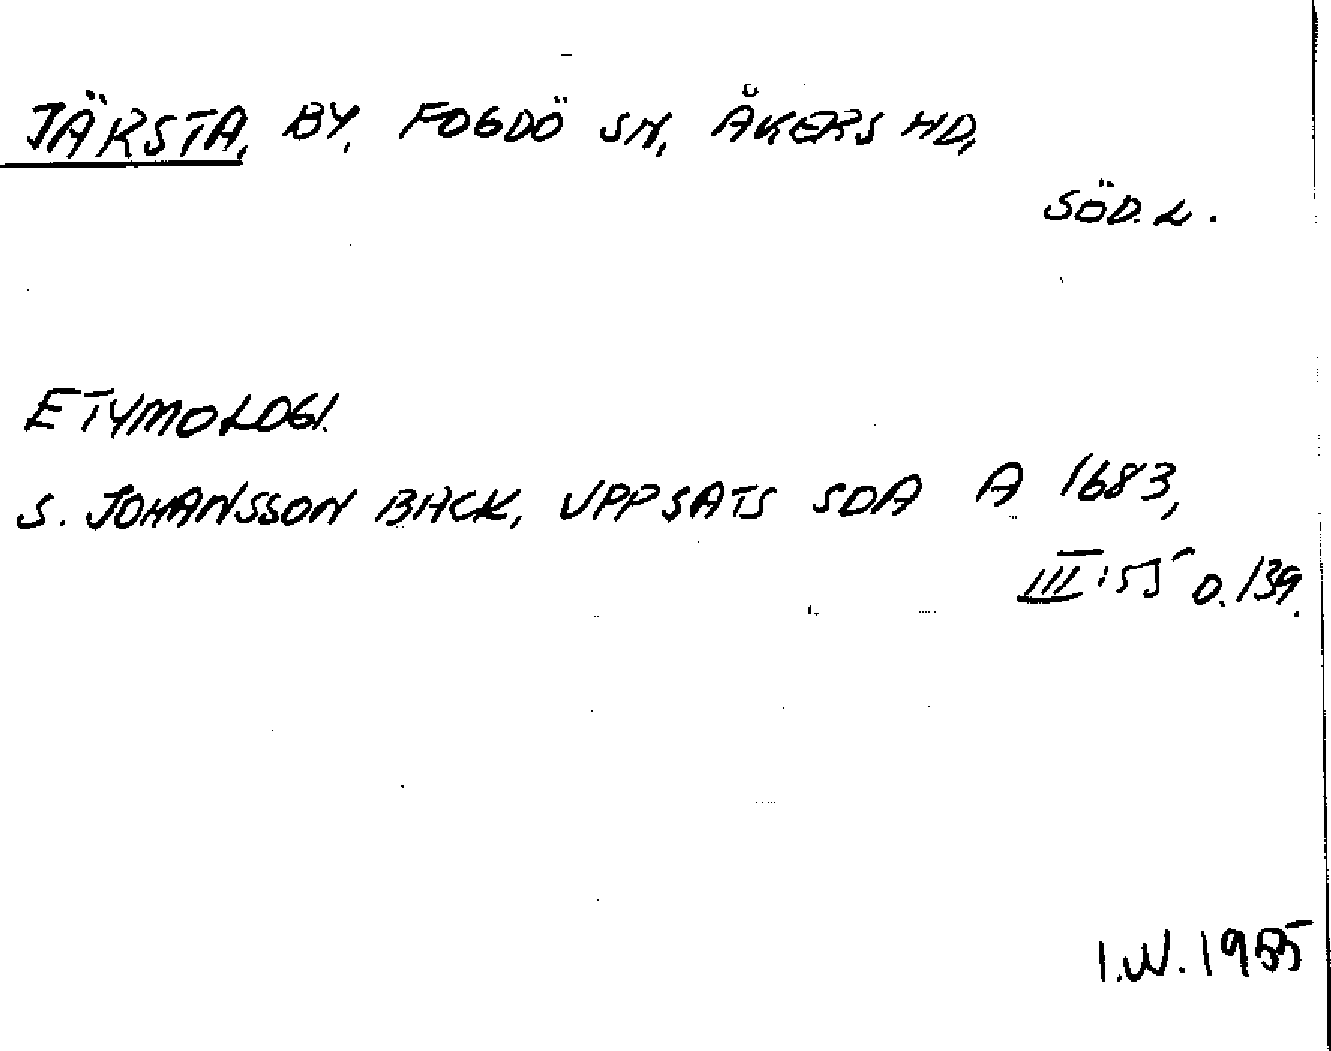 JÄRSTA, BY, FOGDÖ SN, ÅKERS HD,
SÖD. L.
ETYMOLOGI.
S. JOHANSSON BACK, UPPSATS SOA A 1683,
III:55 O. 139.
I.W. 1985